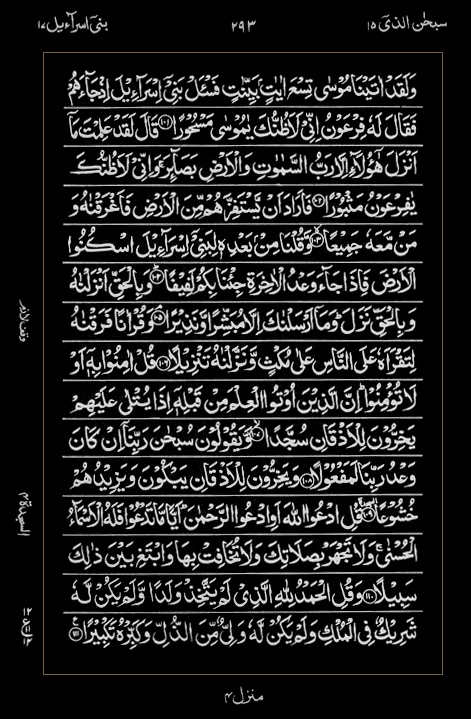 سبحٰن الذی ١٥
٢٩٣
بنی اسرآءیل ١٧
وَلَقَدْ اٰتَیْنَا مُوْسٰی تِسْعَ اٰیٰتٍۭ بَیِّنٰتٍ فَسْـَٔلْ بَنِیْۤ اِسْرَآءِیْلَ اِذْ جَآءَهُمْ
فَقَالَ لَهٗ فِرْعَوْنُ اِنِّیْ لَاَظُنُّكَ یٰمُوْسٰی مَسْحُوْرًا ﴿١٠١﴾ قَالَ لَقَدْ عَلِمْتَ مَاۤ
اَنْزَلَ هٰۤؤُلَآءِ اِلَّا رَبُّ السَّمٰوٰتِ وَالْاَرْضِ بَصَآئِرَ ۚ وَاِنِّیْ لَاَظُنُّكَ
یٰفِرْعَوْنُ مَثْبُوْرًا ﴿١٠٢﴾ فَاَرَادَ اَنْ یَّسْتَفِزَّهُمْ مِّنَ الْاَرْضِ فَاَغْرَقْنٰهُ وَ
مَنْ مَّعَهٗ جَمِیْعًا ﴿١٠٣﴾ وَّقُلْنَا مِنْۢ بَعْدِهٖ لِبَنِیْۤ اِسْرَآءِیْلَ اسْكُنُوا
الْاَرْضَ فَاِذَا جَآءَ وَعْدُ الْاٰخِرَةِ جِئْنَا بِكُمْ لَفِیْفًا ﴿١٠٤﴾ وَبِالْحَقِّ اَنْزَلْنٰهُ
وَبِالْحَقِّ نَزَلَ ؕ وَمَاۤ اَرْسَلْنٰكَ اِلَّا مُبَشِّرًا وَّنَذِیْرًا ﴿١٠٥﴾ وَقُرْاٰنًا فَرَقْنٰهُ
لِتَقْرَاَهٗ عَلَی النَّاسِ عَلٰی مُكْثٍ وَّنَزَّلْنٰهُ تَنْزِیْلًا ﴿١٠٦﴾ قُلْ اٰمِنُوْا بِهٖۤ اَوْ
لَا تُؤْمِنُوْا ؕ اِنَّ الَّذِیْنَ اُوْتُوا الْعِلْمَ مِنْ قَبْلِهٖۤ اِذَا یُتْلٰی عَلَیْهِمْ
یَخِرُّوْنَ لِلْاَذْقَانِ سُجَّدًا ﴿١٠٧﴾ وَّیَقُوْلُوْنَ سُبْحٰنَ رَبِّنَاۤ اِنْ كَانَ
وَعْدُ رَبِّنَا لَمَفْعُوْلًا ﴿١٠٨﴾ وَیَخِرُّوْنَ لِلْاَذْقَانِ یَبْكُوْنَ وَیَزِیْدُهُمْ
خُشُوْعًا ﴿١٠٩﴾ قُلِ ادْعُوا اللّٰهَ اَوِ ادْعُوا الرَّحْمٰنَ ؕ اَیًّا مَّا تَدْعُوْا فَلَهُ الْاَسْمَآءُ
الْحُسْنٰی ۚ وَلَا تَجْهَرْ بِصَلَاتِكَ وَلَا تُخَافِتْ بِهَا وَابْتَغِ بَیْنَ ذٰلِكَ
سَبِیْلًا ﴿١١٠﴾ وَقُلِ الْحَمْدُ لِلّٰهِ الَّذِیْ لَمْ یَتَّخِذْ وَلَدًا وَّلَمْ یَكُنْ لَّهٗ
شَرِیْكٌ فِی الْمُلْكِ وَلَمْ یَكُنْ لَّهٗ وَلِیٌّ مِّنَ الذُّلِّ وَكَبِّرْهُ تَكْبِیْرًا ﴿١١١﴾
وقف لازم
السجدة ٤
١٢
ع
١٢
منزل ٤